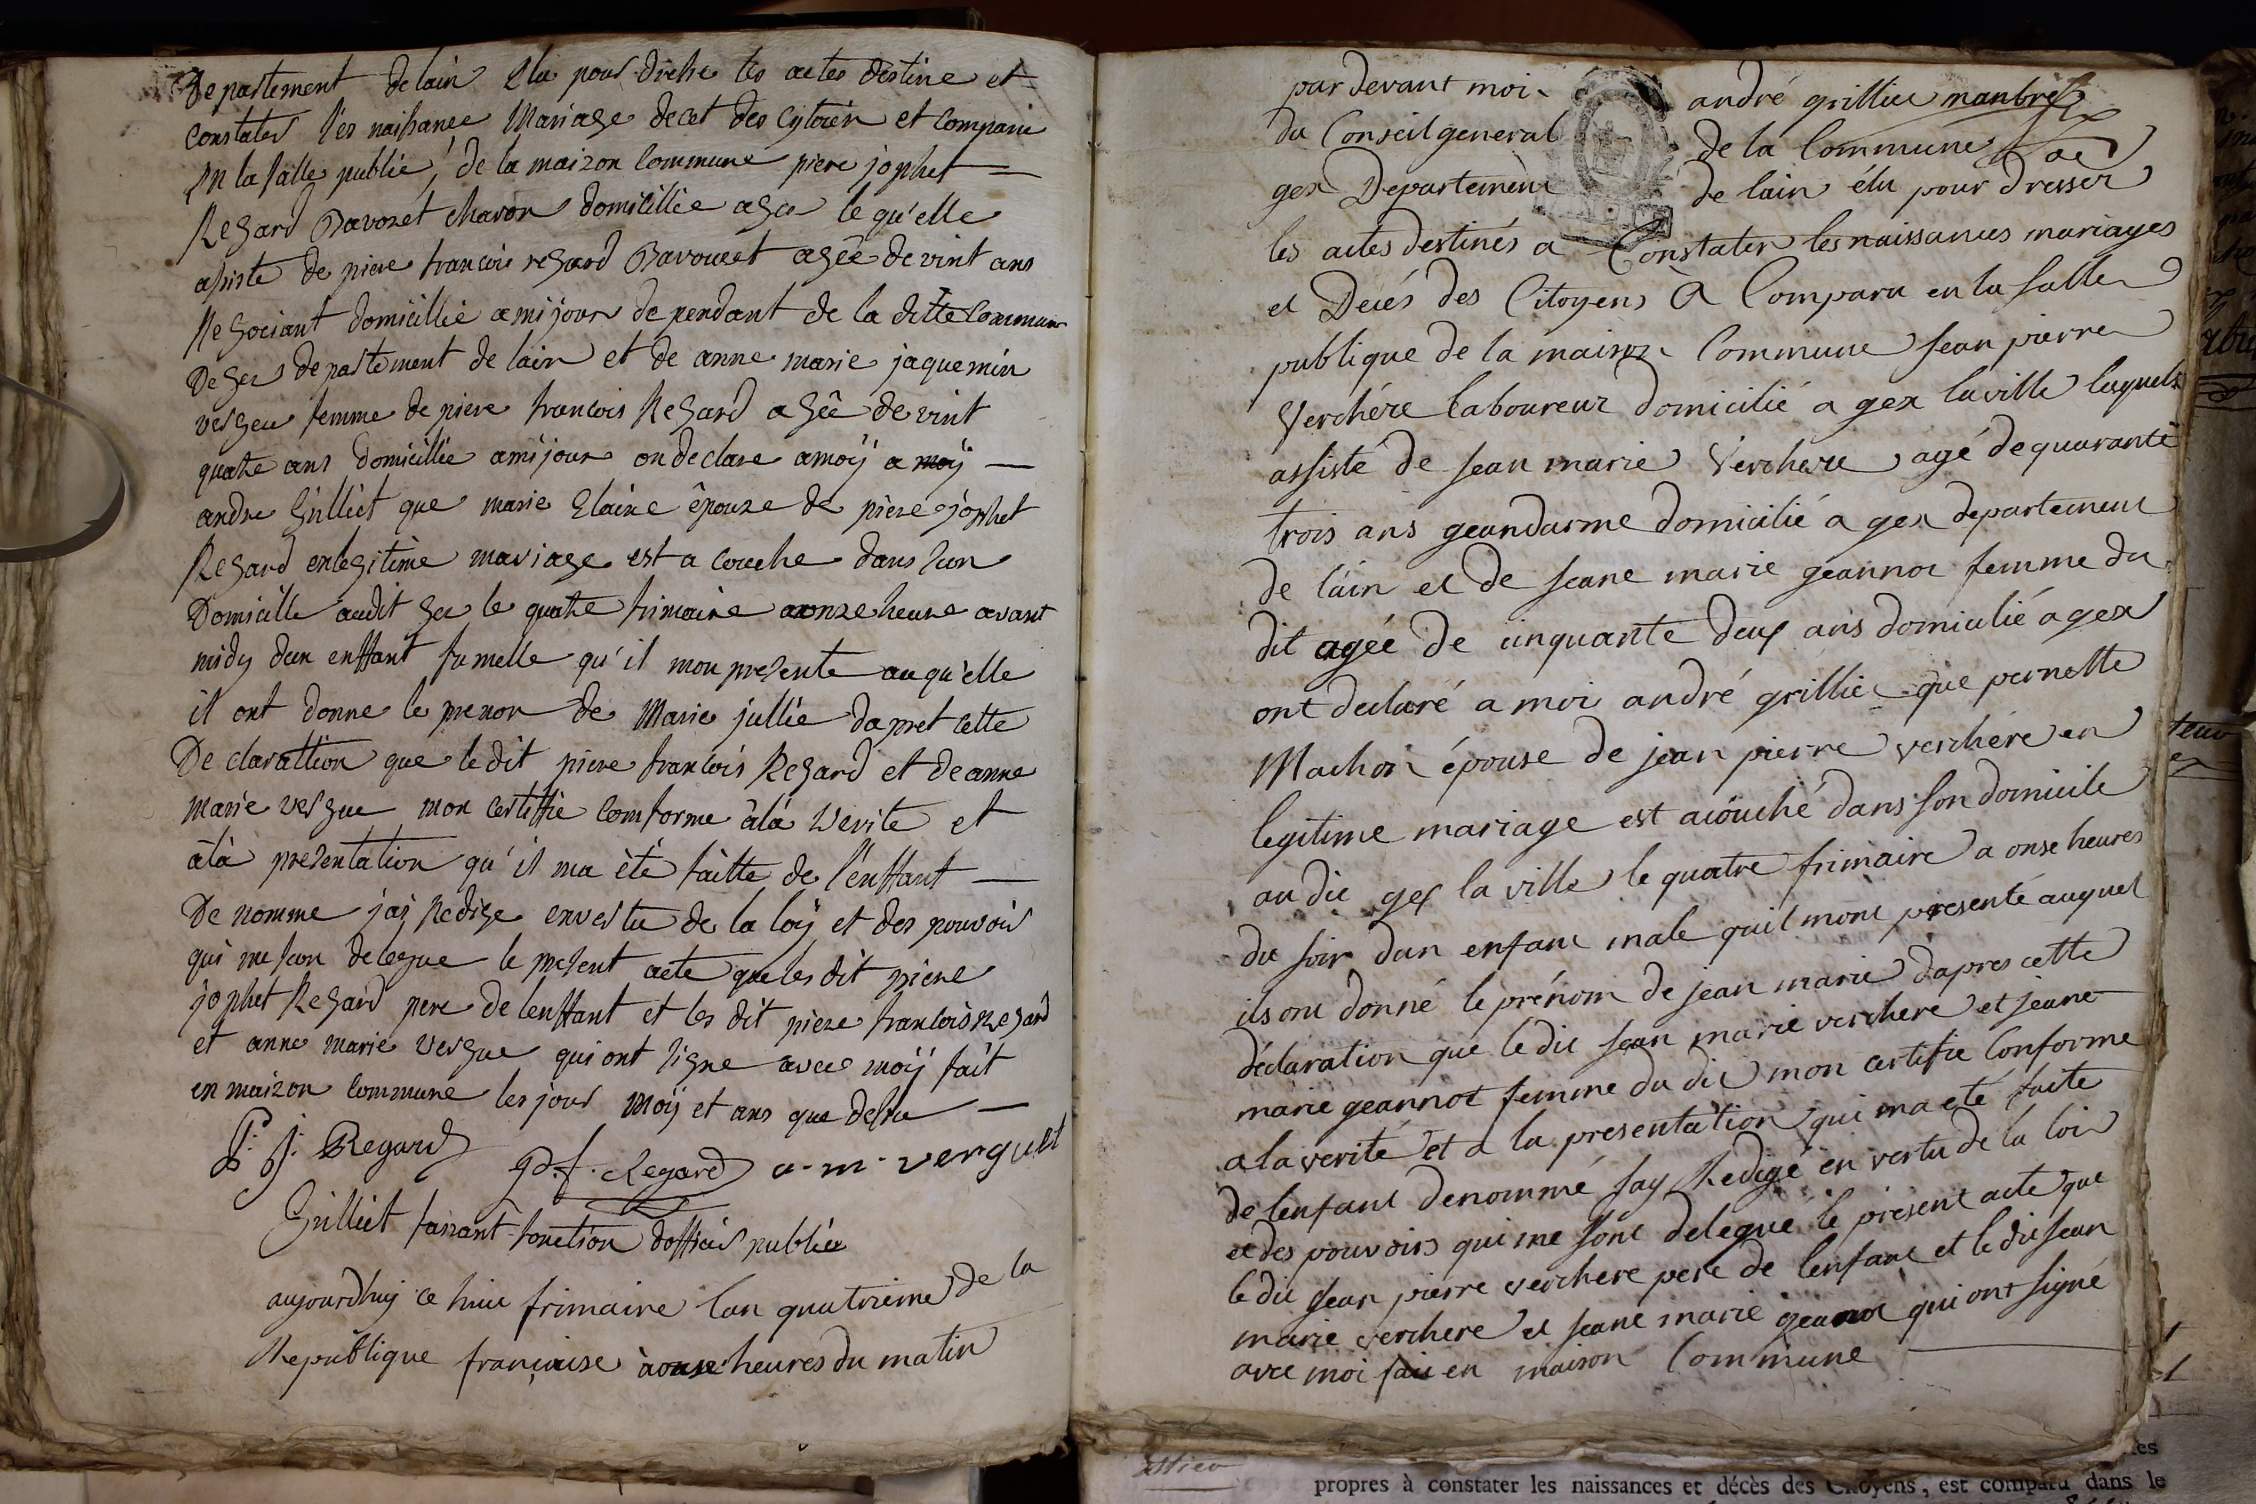 Departement delain Elu pour drehe les actes destine et
constater les naihance Mariage decet des Cytoien et comparu
En la salle publie, de la maizon commune piere jophet
Regard Bavozet charon domicillie a gex le qu'elle
asiste de piere francois regard Bavouzet agêe de vint ans
Negociant domicillié a mijour de pendant de la ditte Commune
De gex departement de lain et de anne marie jaquemin
vergeu femme de piere francois Regard agêe de vint
quatre ans domicillie amijour on declare a moÿ a moÿ
andre Grilliet que marie Elaine êpouze de piere jophet
Regard enlegitime mariage est a couche dans son
Domicille audit gex le quatre frimaire a onze heure avant
midy dun enffant fumelle qu'il mon presente au qu'elle
il ont donne le prenon de Marie jullie dapret cette
De clarattion que le dit piere francois Regard et de anne
marie vergue mon certiffie comforme àlà verite et
àlà presentation qu'il ma èté faitte de l'enffant
De nomme jaÿ Redige envertu de la loÿ et des pouvoir
qui me son delegue le present acte que les dit piere
jophet Regard pere de lenffant et les dit piere francois Regard
et anne marie vergue qui ont signe avec moÿ fait
en maizon commune les jour moÿ et ans que desu
P: J: Regard p.f. Regard a. m. verguet
Grilliet faisant fonction dofficier publie
aujourdhuy ce huit frimaire lan quatrieme de la
Republique française à onse heures du matin
par devant moi andré grilliet manbre
du Conseil general de la Commune de
gex Departement de lain élu pour dresser
les actes destinés a Constater les naissances mariages
et Decés des Citoyens A Comparu en la salle
publique de la maison Commune jean pierre
Verchére laboureur domicilié a gex la ville lequel
assisté de jean marie Verchere agé de quarante
trois ans geandarme domicilié a gex departement
de lain et de jeane marie geannot femme du
dit agée de cinquante deux ans domicilié a gex
ont declaré a moi andré grilliet que pernette
Machon épouse de jean pierre verchére en
legitime mariage est acouché dans son domicile
au dit gex la ville le quatre frimaire a onse heures
du soir dun enfant male quil mont presenté auquel
ils ont donné le prénom de jean marie dapres cette
déclaration que le dit jean marie verchere et jeane
marie geannot femme du dit mon certifie Conforme
a la verité et a la presentation qui ma eté faite
de lenfant denommé jay Redigé en vertu de la loi
et des pouvoirs qui me sont delegué le present acte que
le dit jean pierre verchere pere de lenfant et le dit jean
marie verchere et jeane marie geannot qui ont signé
avec moi fait en maison Commune
propres à constater les naissances et décès des Citoyens, est comparu dans le